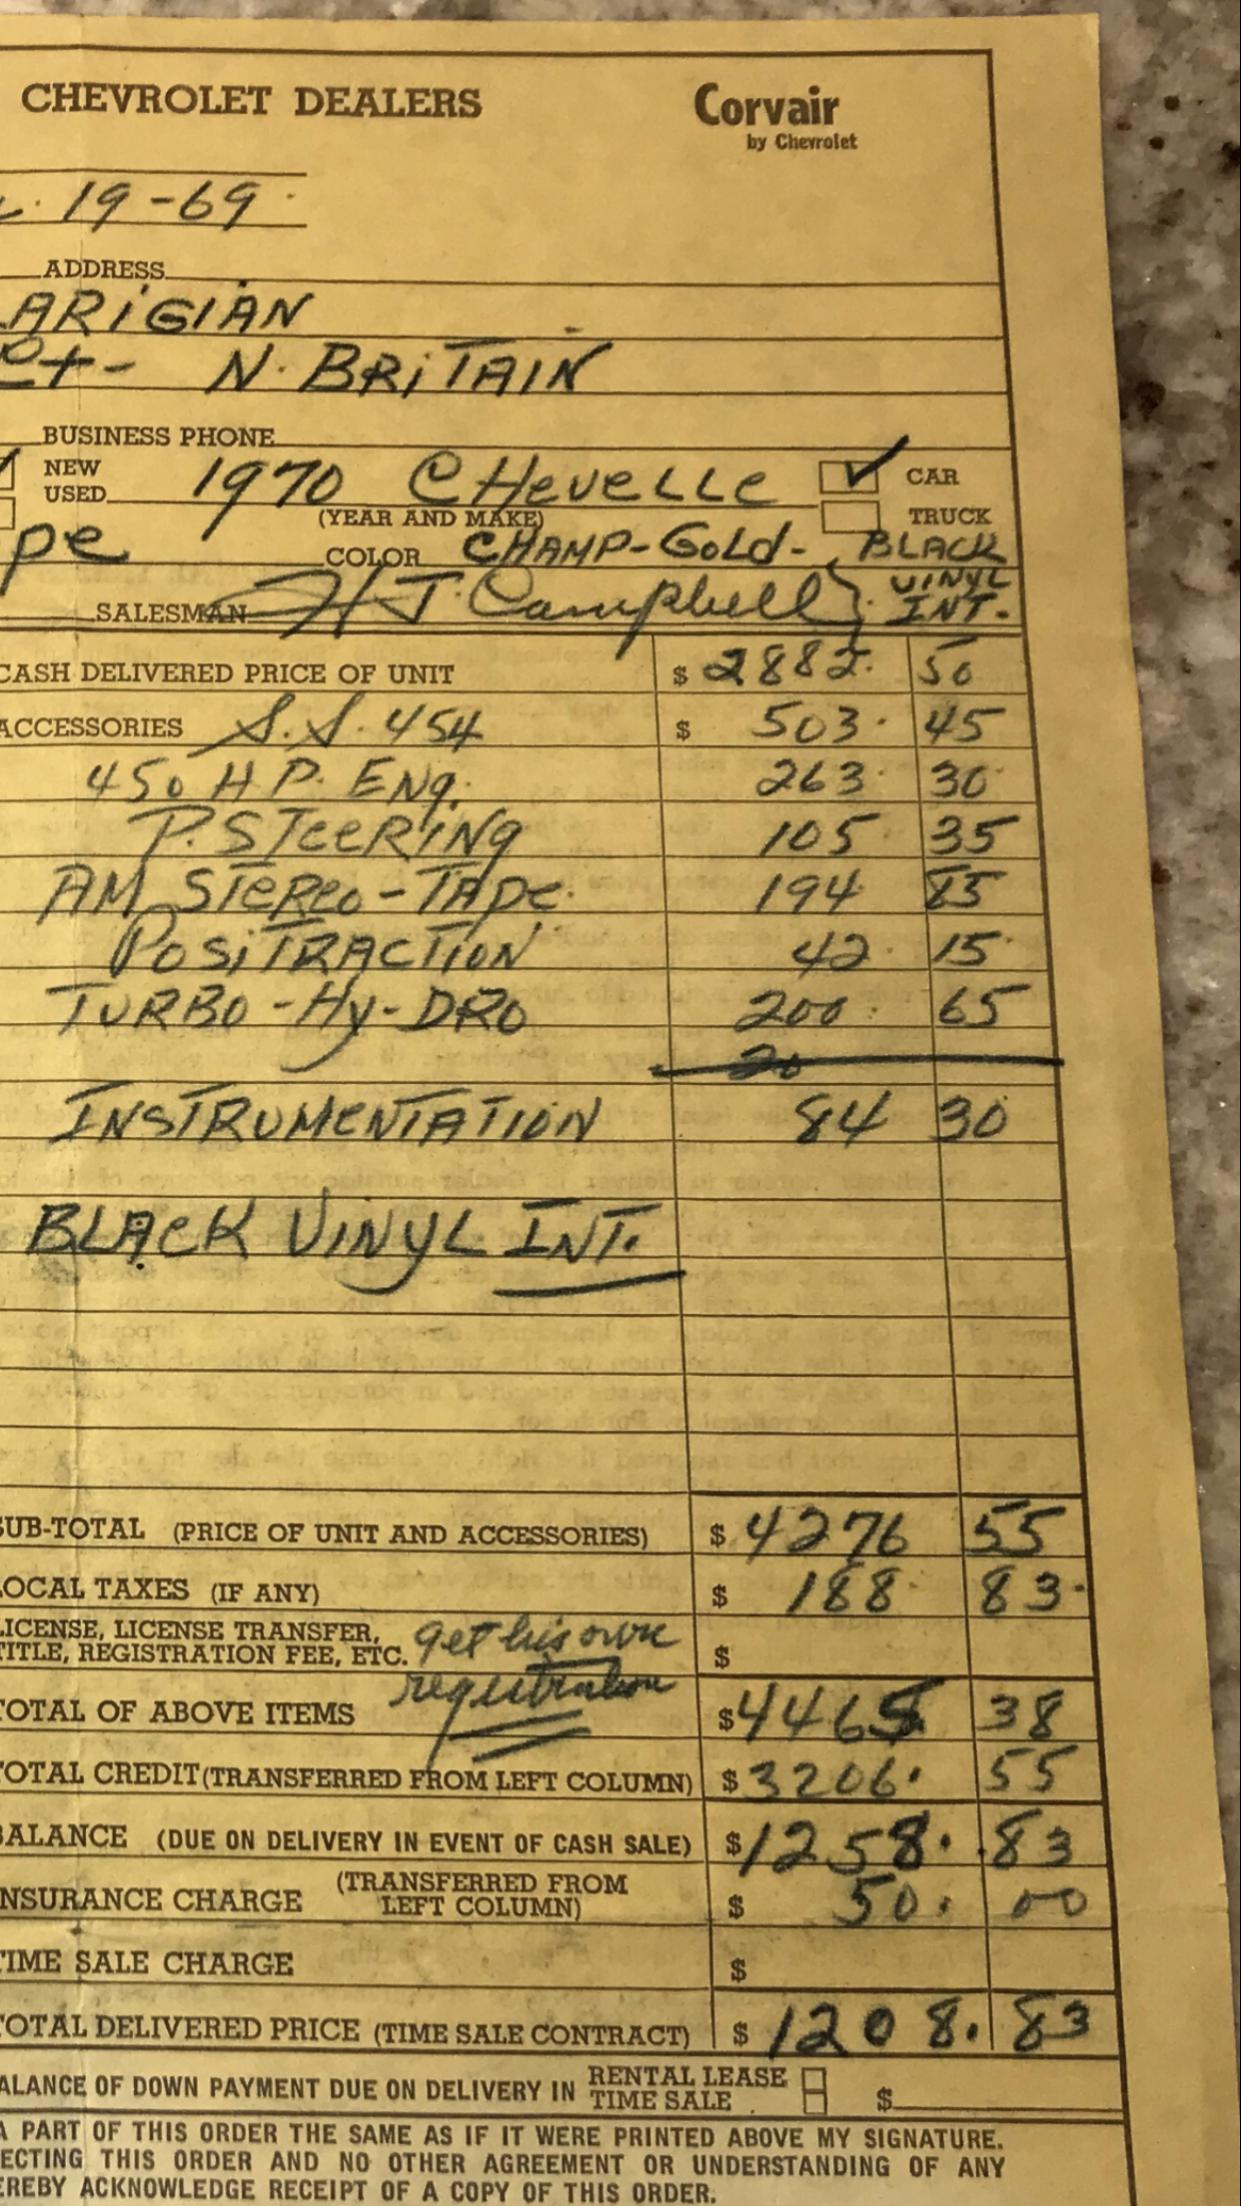 CHEVROLET DEALERS
Corvair
by Chevrolet
19-69
ADDRESS
ARIGIAN
N. BRITAIN
BUSINESS PHONE
NEW
USED 1970 CHEVELLE CAR
(YEAR AND MAKE) TRUCK
pe COLOR CHAMP-GOLD- BLACK
VINYL
SALESMAN H J. Campbell INT.
CASH DELIVERED PRICE OF UNIT $ 2882. 50
ACCESSORIES S.S. 454 $ 503. 45
450 H P. ENG. 263. 30
P. STEERING 105 35
AM STEREO-TAPE. 194 85
POSITRACTION 42. 15
TURBO-HY-DRO 200. 65
20
INSTRUMENTATION 84 30
BLACK VINYL INT.
SUB-TOTAL (PRICE OF UNIT AND ACCESSORIES) $ 4276 55
LOCAL TAXES (IF ANY) $ 188 83
LICENSE, LICENSE TRANSFER,
TITLE, REGISTRATION FEE, ETC. get his own $
registration
TOTAL OF ABOVE ITEMS $ 4465 38
TOTAL CREDIT (TRANSFERRED FROM LEFT COLUMN) $ 3206. 55
BALANCE (DUE ON DELIVERY IN EVENT OF CASH SALE) $ 1258. 83
INSURANCE CHARGE (TRANSFERRED FROM LEFT COLUMN) $ 50. 00
TIME SALE CHARGE $
TOTAL DELIVERED PRICE (TIME SALE CONTRACT) $ 1208. 83
ALANCE OF DOWN PAYMENT DUE ON DELIVERY IN RENTAL LEASE
TIME SALE $
A PART OF THIS ORDER THE SAME AS IF IT WERE PRINTED ABOVE MY SIGNATURE.
ECTING THIS ORDER AND NO OTHER AGREEMENT OR UNDERSTANDING OF ANY
EREBY ACKNOWLEDGE RECEIPT OF A COPY OF THIS ORDER.